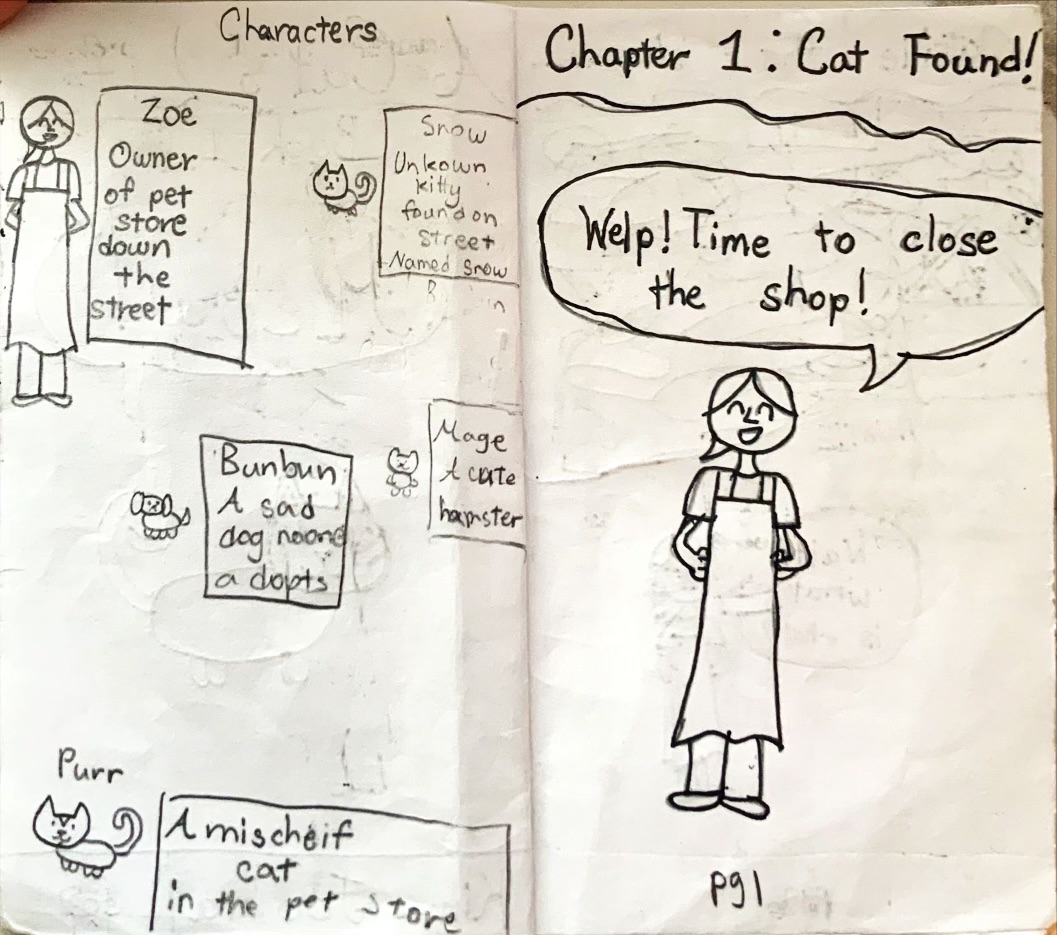 Characters
Zoe
Owner
of pet
store
down
the
street
Snow
Unkown
kitty
found on
street
Named Snow
Bunbun
A sad
dog noone
adopts
Mage
A cute
hamster
Purr
A mischeif
cat
in the pet store
Chapter 1: Cat Found!
Welp! Time to close
the shop!
pg1